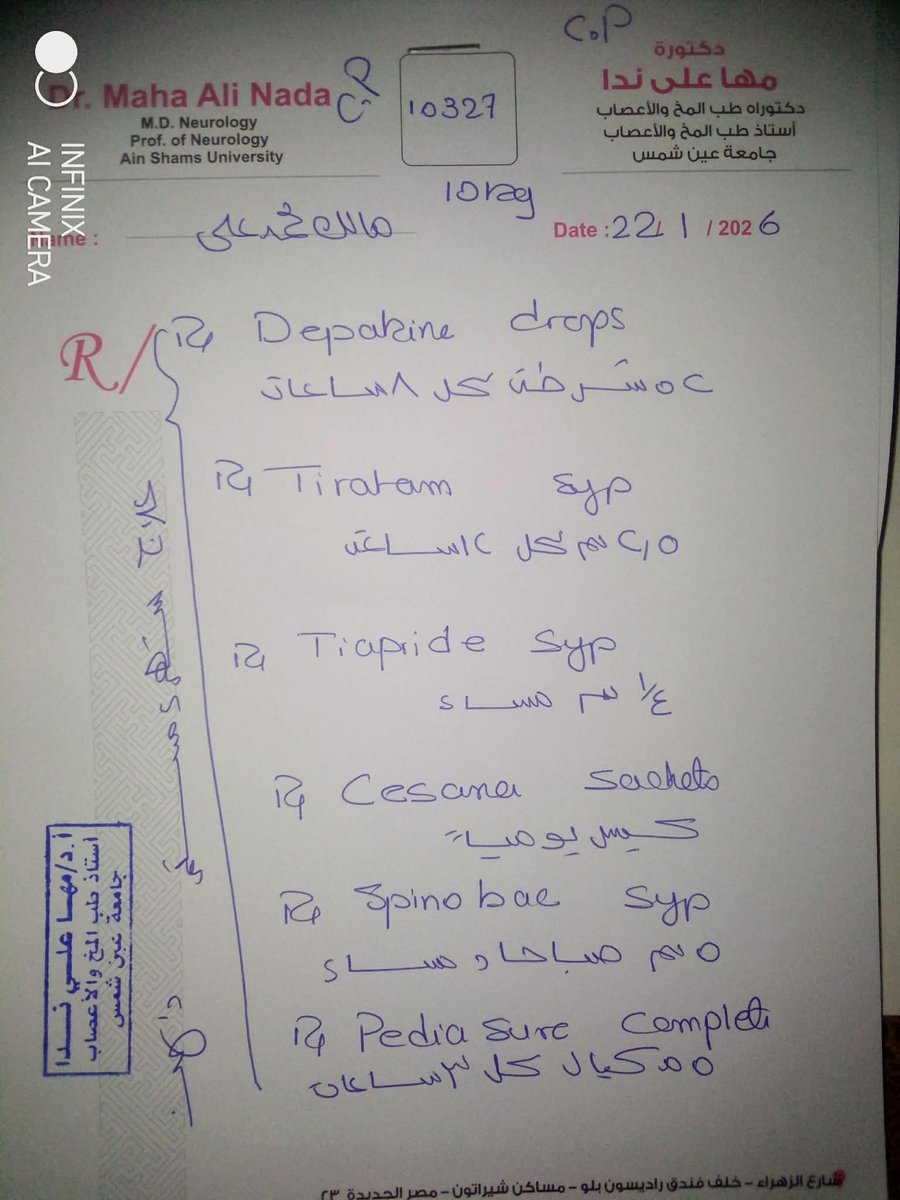 C.P
دكتورة
مها على ندا
دكتوراه طب المخ والأعصاب
أستاذ طب المخ والأعصاب
جامعة عين شمس
Dr. Maha Ali Nada
M.D. Neurology
Prof. of Neurology
Ain Shams University
10327
10 kg
Name : مالك محمد على
Date : 22 / 1 / 2026
R/
Depakine drops
شرطة كل ٨ ساعات
Tiratam syp
٢,٥ سم كل ١٢ ساعة
Tiapride syp
١/٤ سم مساء
Cesana sachets
كيس يوميا
Spinobac syp
٥ سم صباحا و مساء
PediaSure Complete
مكيال كل ٣ ساعات
أ.د/مها علي ندا
أستاذ طب المخ والأعصاب
جامعة عين شمس
شارع الزهراء - خلف فندق راديسون بلو - مساكن شيراتون - مصر الجديدة ٢٣
INFINIX
AI CAMERA